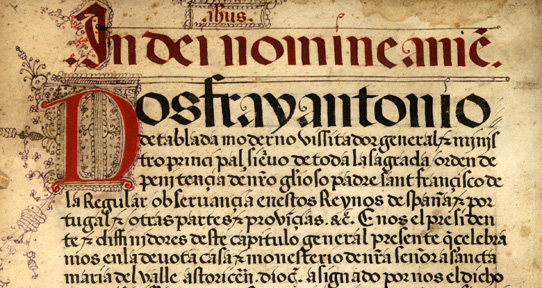 ihus.
In dei nomine amē.
Nos fray antonio
de tablada moderno vissitador general ⁊ minis
tro principal, siēuo de toda la sagrada orden de
penitençia de nr̃o gl̃ioso padre sant françisco de
la Regular obseruançia en estos Reynos de spaña ⁊ por
tugal ⁊ otras partes ⁊ proviçias. ⁊c. E nos el presiden
te ⁊ diffinidores deste capitulo general presente q̃ celebra
mos en la deuota casa ⁊ monesterio de nr̃a señora sancta
maria del valle astoricen̄. dioc̃. asignado por nos el dicho